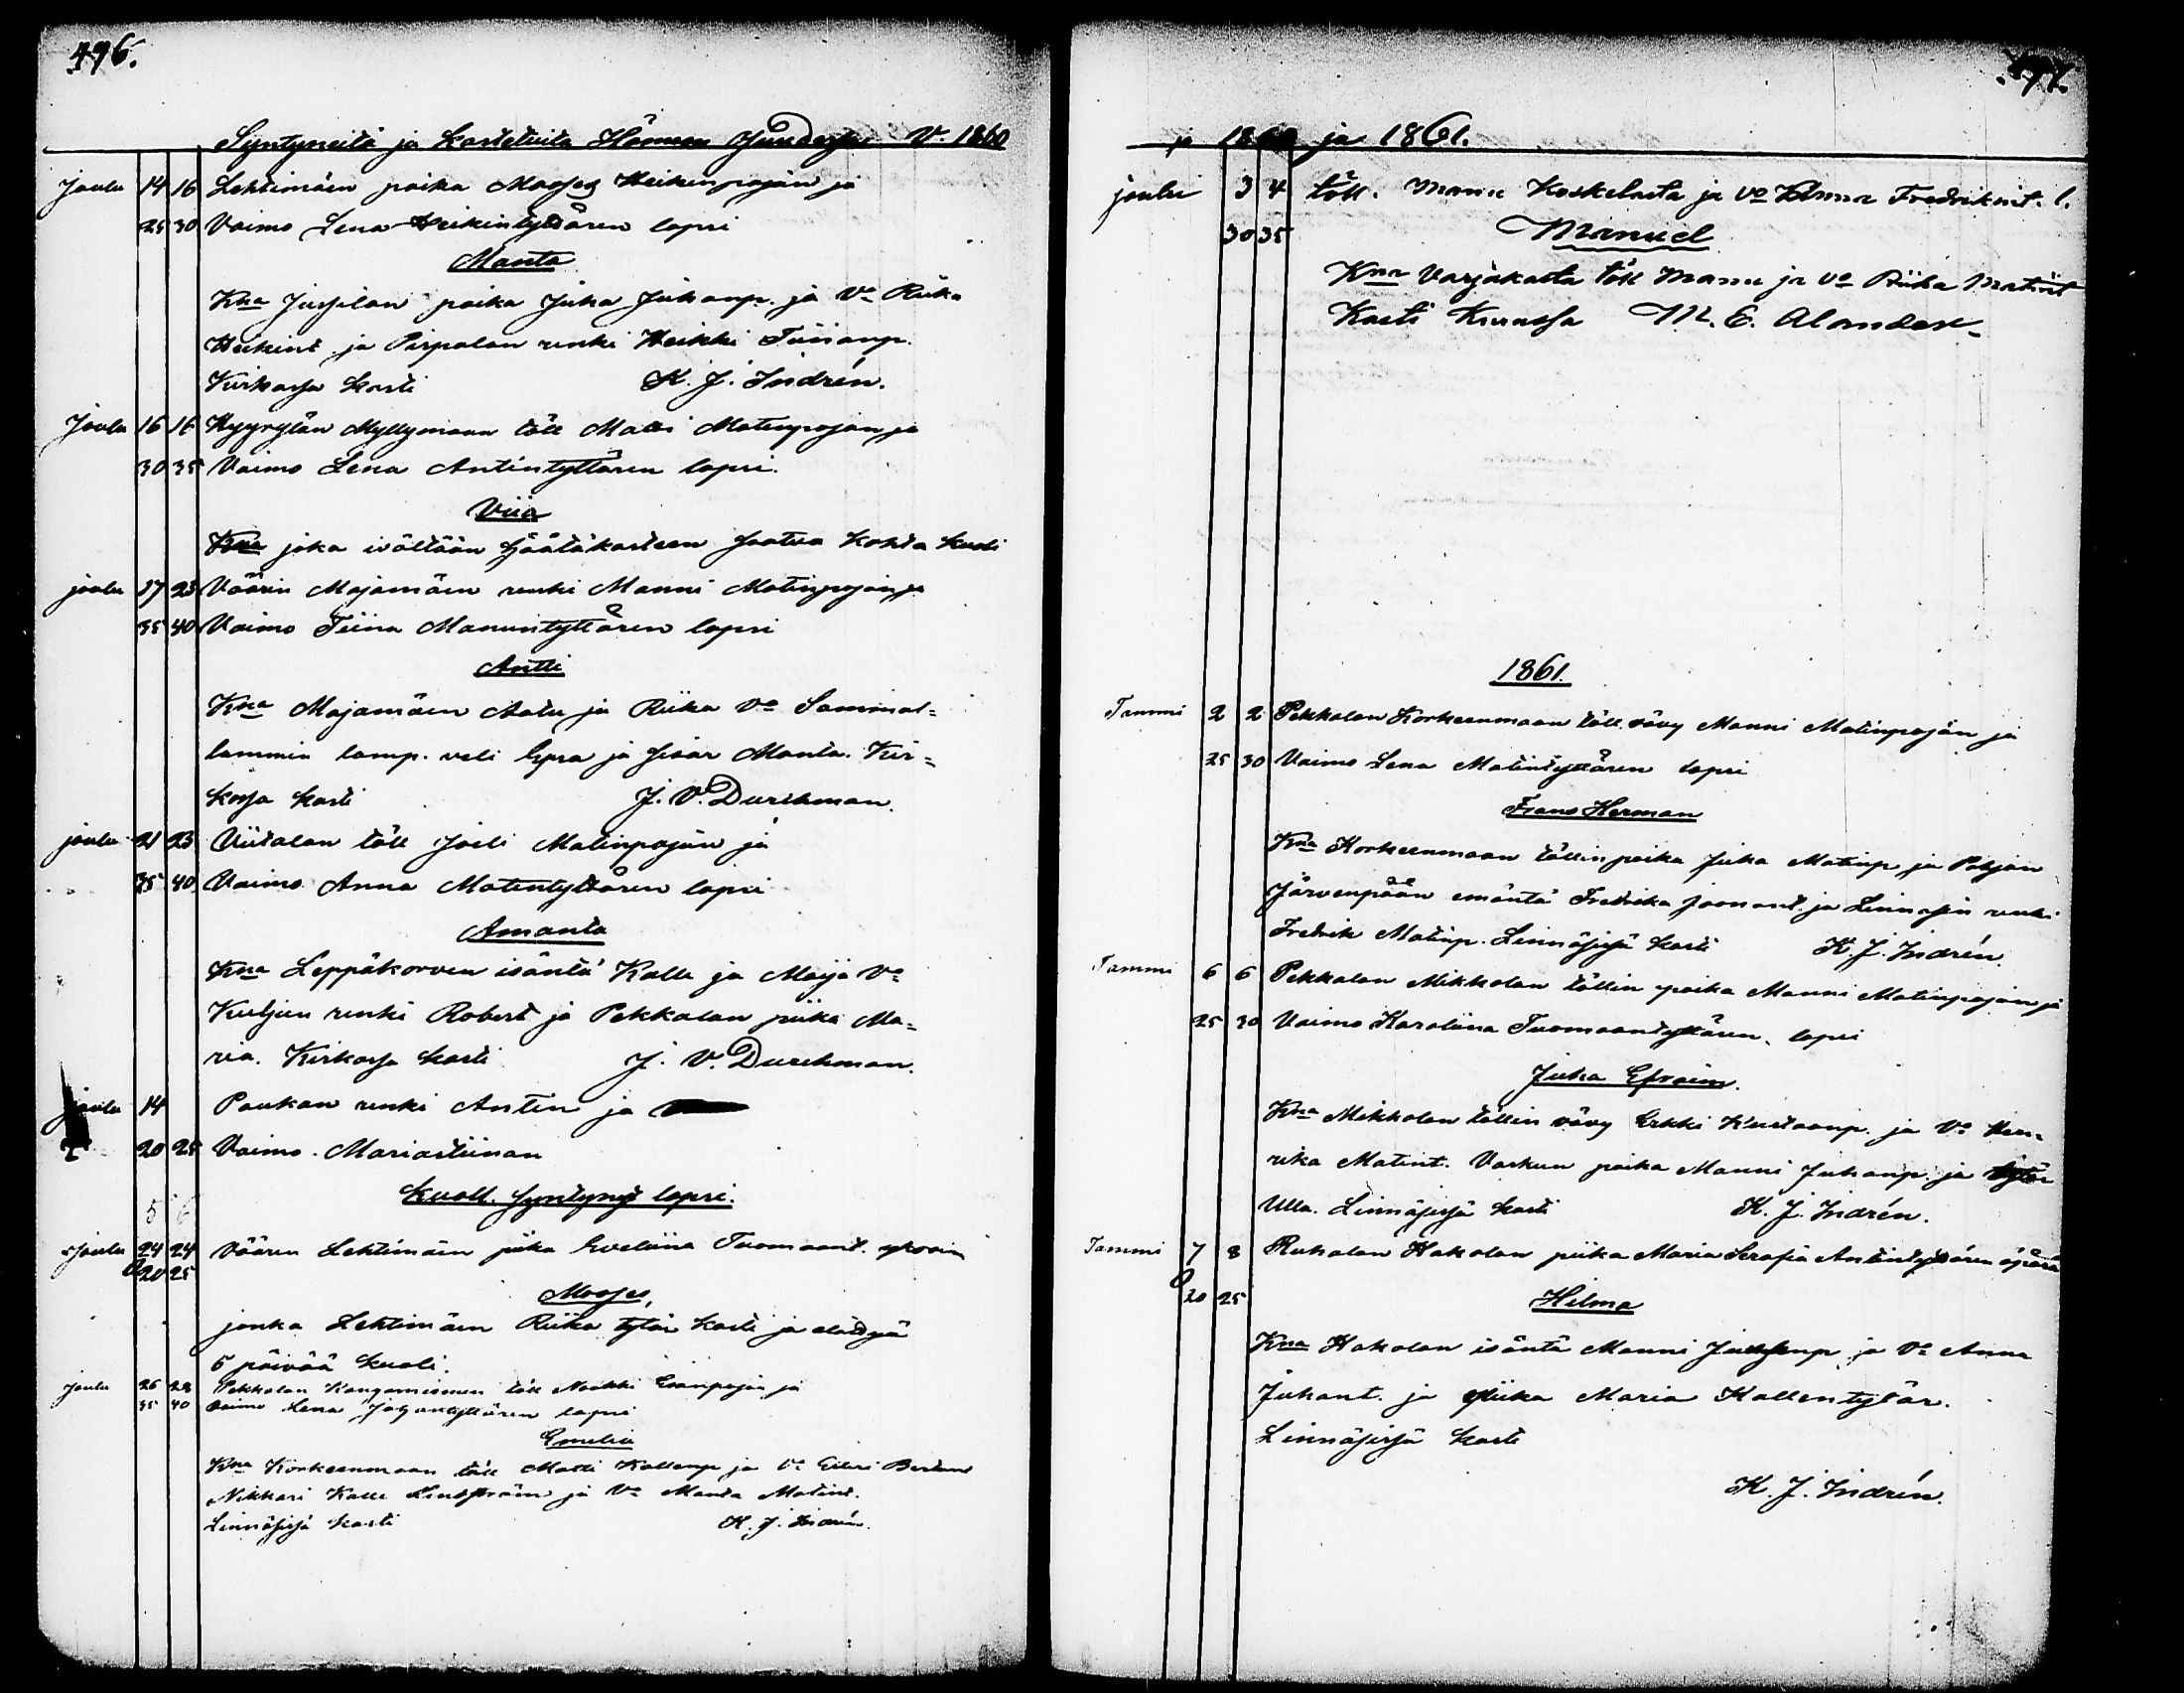 496.
Syntyneitä ja kastetuita Hämeen V. 1860
Joulu 14 16 Lehtimäen poika Mooses Heikinpojan ja
25 30 Vaimo Lena Heikintyttären lapsi
Manta
Kna Jussilan poika Juha Juhanp. ja Va Riika
Heikint ja Pirpalan renki Heikki
Kirkossa kasti K. J. Indrén.
Joulu 16 16 Hyyrylän Myllymaan töll Matti Matinpojan ja
30 35 Vaimo Lena Antintyttären lapsi.
Viia
Kna joka häätäkasteen saatua kohta kuoli
joulu 17 23 Väärin Majamäen renki Manni Matinpojan ja
35 40 Vaimo Tiina Manuntyttären lapsi
Antti
Kna Majamäen Aatu ja Riika Va Sammal-
lammin lamp. veli Esra ja sisar Manta. Kir-
kossa kasti J. V. Durchman.
joulu 21 23 Viitalan töll Joeli Matinpojan ja
35 40 Vaimo Anna Matintyttären lapsi
Amanta
Kna Leppäkorven isäntä Kalle ja Maija Va
Kuljun renki Robert ja Pekkalan piika Ma-
ria. Kirkossa kasti J. V. Durchman.
joulu 14 Paukan renki Antin ja
20 25 Vaimo Mariastiinan
kuoll. syntynyt lapsi.
5 6
joulu 24 24 Väären Lehtimäen piika Eveliina Tuomaant.
20 25
Mooses,
jonka Lehtimäen Riika tytär kasti ja elättyä
5 päivää kuoli.
joulu 26 28 Pekkalan töll Nookki ja
35 40 Vaimo Lena lapsi
Emelia
Kna Korkeenmaan töll Matti Kallenp ja Va
Nikkari Kalle Lindström ja Va Manta Matint.
Linnäsissä kasti K. J. Indrén.
497.
ja 1860 ja 1861.
joulu 3 4 töll. Manu Koskelasta ja Vo Fredrikint. l.
30 35 Manuel
Kna Varjakatta töll Manu ja Vo Riika Matint
Kasti Kuussa M. E. Alander
1861.
Tammi 2 2 Pekkalan Korkeenmaan töll. vävy Manni Matinpojan ja
25 30 Vaimo Lena Matintyttären lapsi
Frans Herman
Kna Korkeenmaan töllin poika Juha Matinp ja Pohjan
Järvenpään emäntä Fredrika Joonant. ja renki
Fredrik Matinp. Linnäsissä kasti K. J. Indrén.
Tammi 6 6 Pekkalan Mikkolan töllin poika Manni Matinpojan ja
25 30 Vaimo Karoliina Tuomaantyttären lapsi
Juha Efraim.
Kna Mikkolan töllin vävy Erkki Kustaanp. ja Va Hen-
rika Matint. Varkun poika Manni Juhanp. ja tytär
Ulla. Linnäsissä kasti K. J. Indrén.
Tammi 7 8 Ruhalan Hakolan piika Maria Serafia Antintyttären äpärä
20 25 Hilma
Kna Hakolan isäntä Manni ja Va Anna
Juhant. ja piika Maria Kallentytär.
Linnäsissä kasti
K. J. Indrén.